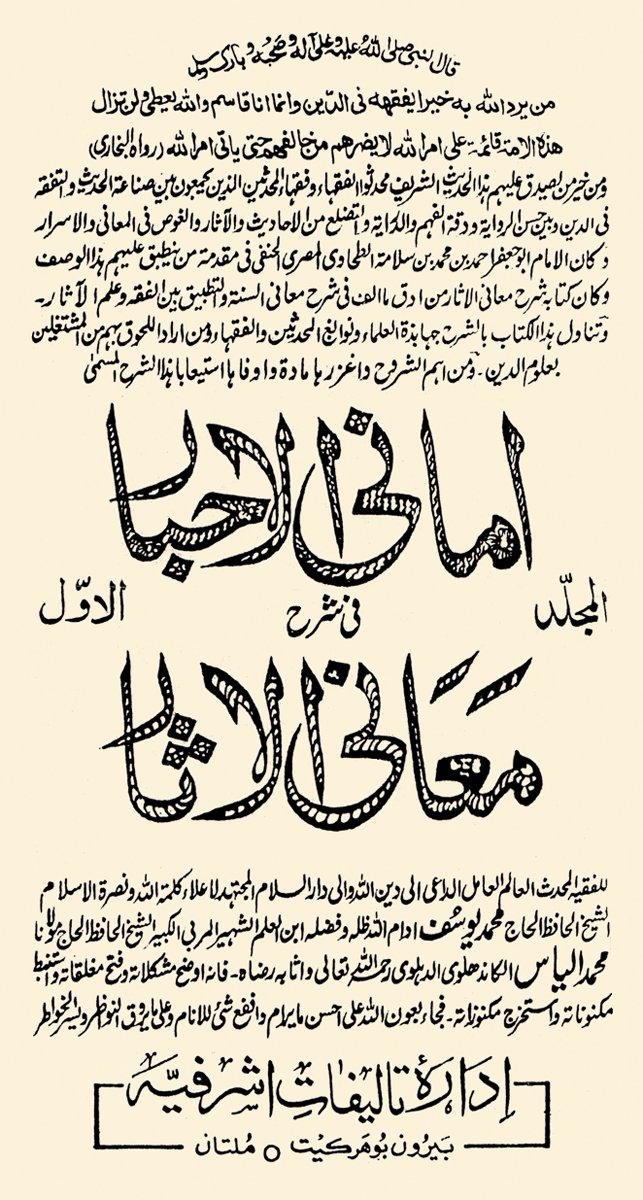 قال النبي صلى الله عليه وعلى آله وصحبه وبارك وسلم
من يرد الله به خيرا يفقهه في الدين وانما انا قاسم والله يعطي ولن تزال
هذه الامة قائمة على امر الله لا يضرهم من خالفهم حتى ياتي امر الله (رواه البخاري)
ومن خير من يصدق عليهم هذا الحديث الشريف محدثوا الفقهاء وفقهاء المحدثين الذين يجمعون بين صناعة الحديث والتفقه
في الدين وبين حسن الرواية ودقة الفهم والدراية والتضلع من الاحاديث والآثار والغوص في المعاني والاسرار
وكان الامام ابو جعفر احمد بن محمد بن سلامة الطحاوى المصرى الحنفى فى مقدمة من ينطبق عليهم هذا الوصف
وكان كتابه شرح معانى الاثار من ادق ما الف فى شرح معانى السنة والتطبيق بين الفقه وعلم الآثار۔
وتناول هذا الكتاب بالشرح جهابذة العلماء ونوابغ المحدثين والفقهاء ومن اراد اللحوق بهم من المشتغلين
بعلوم الدين۔ ومن اهم الشروح واغزرها مادة واوفاها استيعابا هذا الشرح المسمى
امانى الاحبار
المجلد الاول
فى شرح
معانى الاثار
للفقيه المحدث العالم العامل الداعى الى دين الله والى دار السلام المجتهد لاعلاء كلمة الله ونصرة الاسلام
الشيخ الحافظ الحاج محمد يوسف ادام الله ظله وفضله ابن العلم الشهير المربى الكبير الشيخ الحافظ الحاج مولانا
محمد الياس الكاندهلوى الدهلوى رحمه الله تعالى واثابه رضاه۔ فانه اوضح مشكلاته وفتح مغلقاته واستنبط
مكنوناته واستخرج مكنوزاته۔ فجاء بعون الله على احسن ما يرام وانفع شئ للانام وعلى ما يروق النواظر ويسر الخواطر
اِدارۂ تالیفاتِ اشرفیّہ
بیرون بوهڑ گیٹ ○ مُلتان